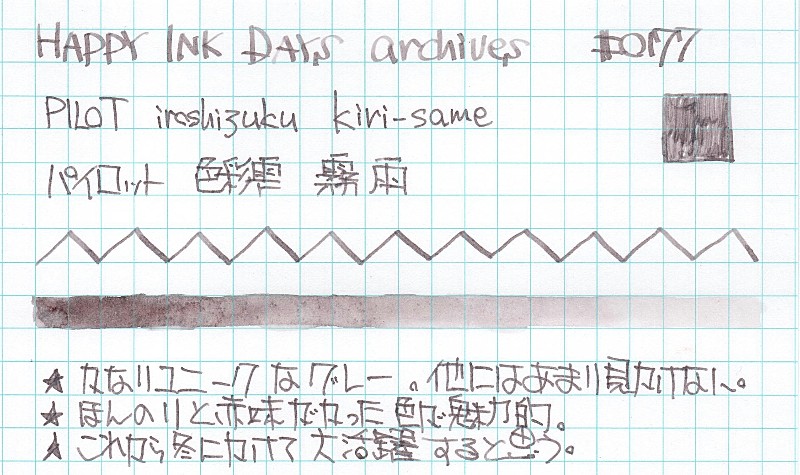 HAPPY INK DAYS archives #0177
PILOT iroshizuku kiri-same
パイロット 色彩雫 霧雨
★ かなりユニークなグレー。他にはあまり見かけない。
★ ほんのりと赤味がかった色で魅力的。
★ これから冬にかけて大活躍すると思う。